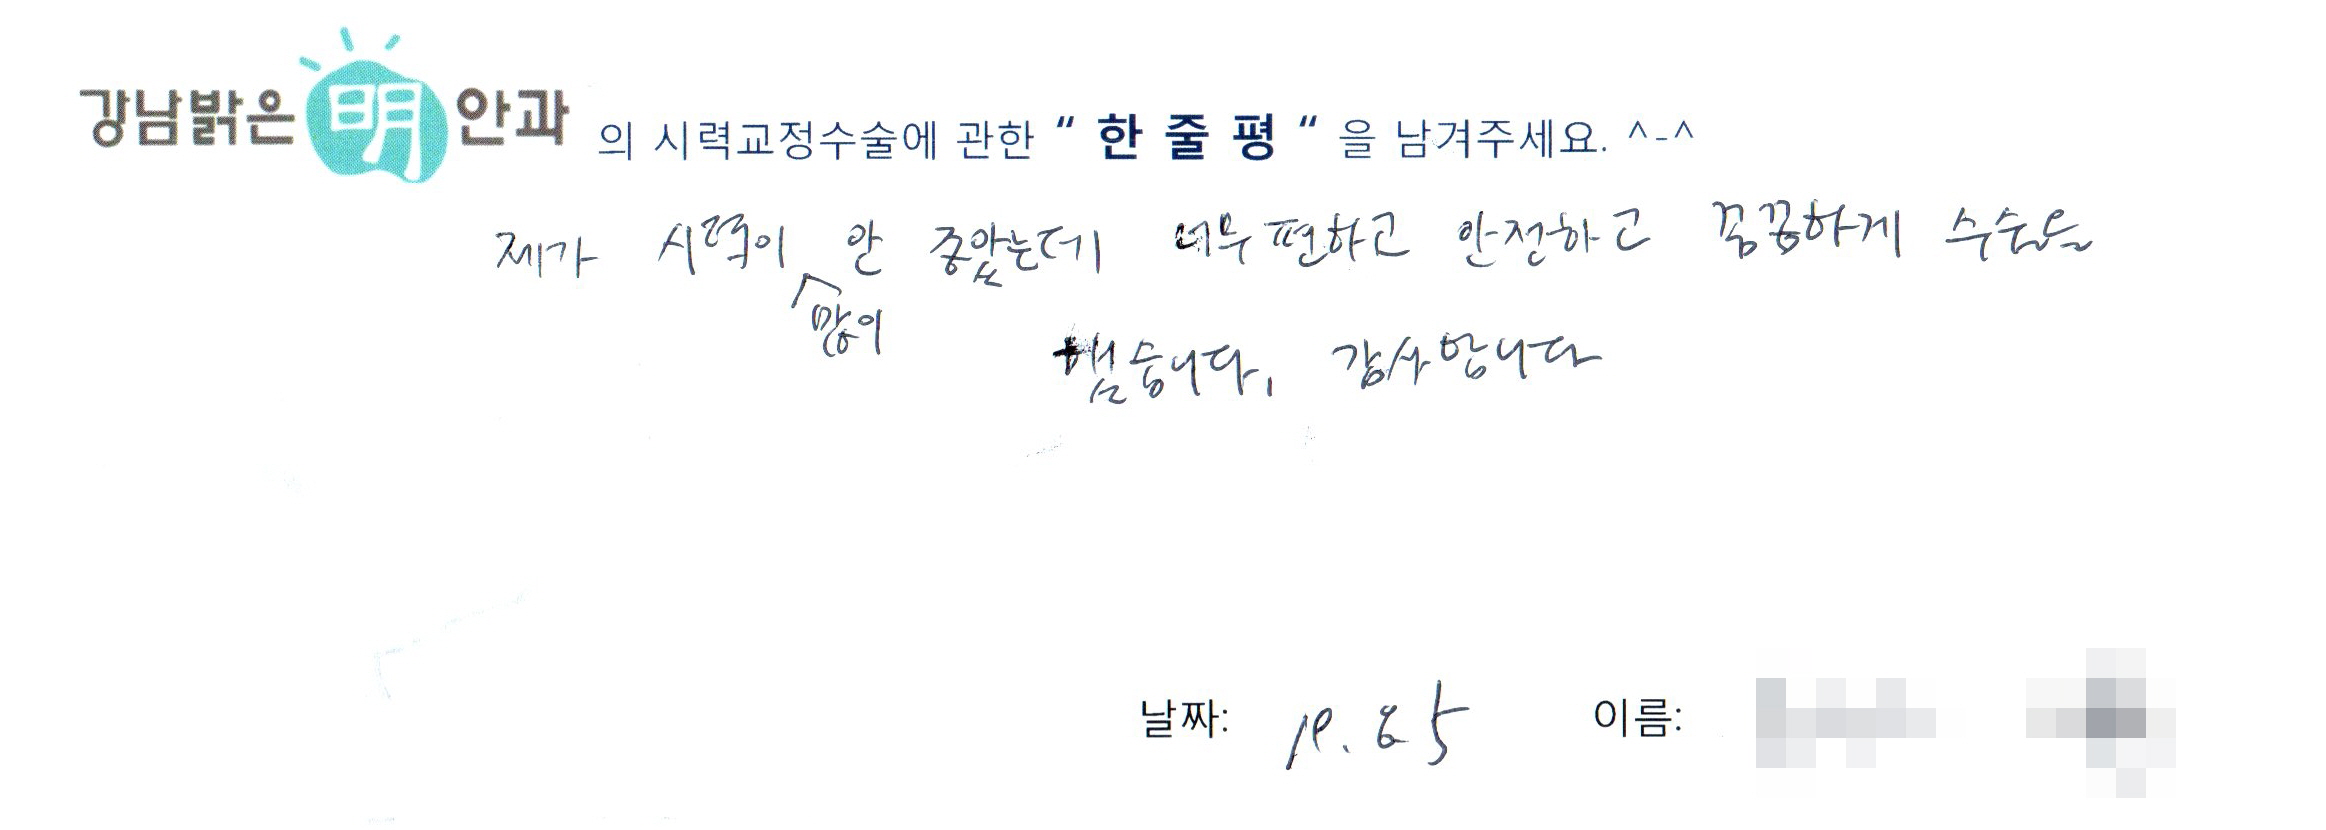 강남밝은 明 안과 의 시력교정수술에 관한 " 한 줄 평 " 을 남겨주세요. ^-^
제가 시력이 안 좋았는데 너무 편하고 안전하고 꼼꼼하게 수술을
많이
했습니다. 감사합니다
날짜: 이름: